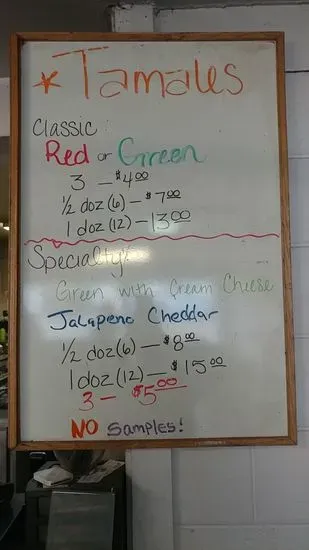 * Tamales
Classic:
Red or Green
3 — $4.00
1/2 doz (6) — $7.00
1 doz (12) — 13.00
Specialty:
Green with Cream Cheese
Jalapeno Cheddar
1/2 doz (6) — $8.00
1 doz (12) — $15.00
3 — $5.00
NO samples!